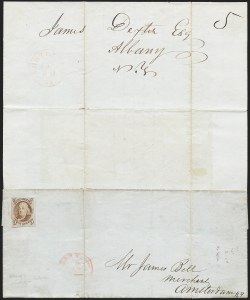 James Dexter Esq
5
Albany
N.Y.
Mr James Bell
Merchant
Amsterdam